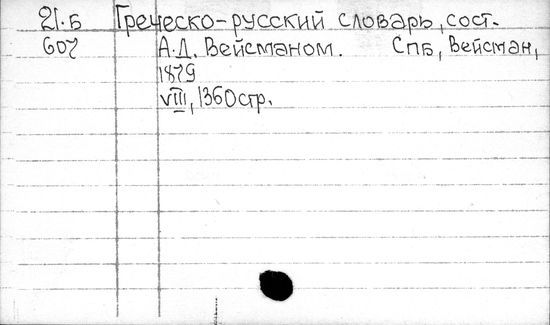 21.Б Греческо-русский словарь, сост.
607 А.Д. Вейсманом. Спб, Вейсман,
1879
VIII, 1360стр.